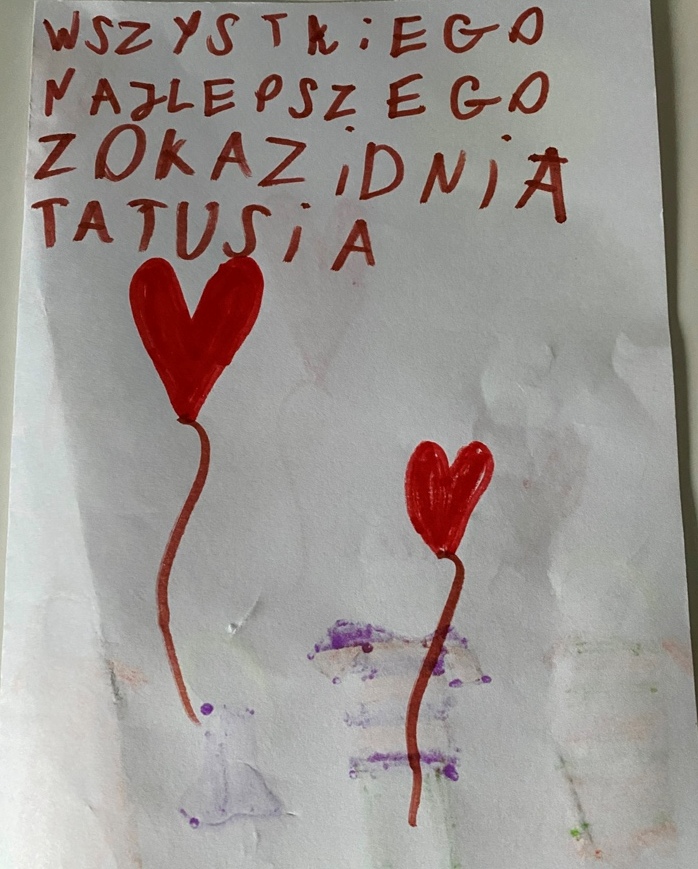 WSZYSTKiEGO
NAJLEPSZEGO
ZOKAZiDNiA
TATUSiA